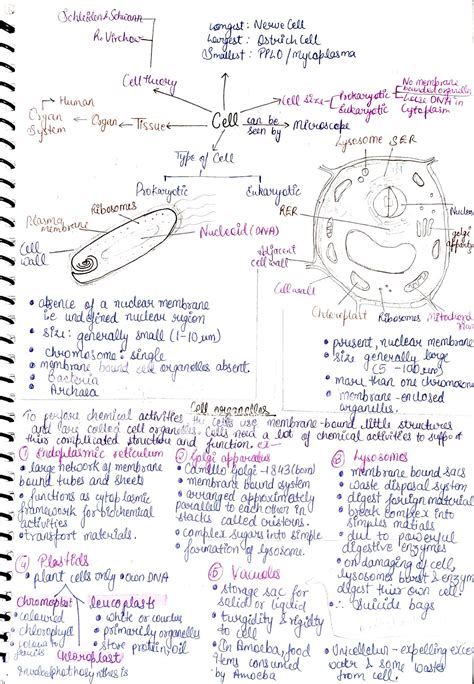 Schleiden & Schwann
R. Virchow
Cell theory
Longest: Nerve Cell
Largest: Ostrich Cell
Smallest: PPLO/mycoplasma
Human
Organ System
Organ
Tissue
Cell
can be seen by
Microscope
Cell size
Prokaryotic
Eukaryotic
No membrane
bounded organelles
DNA in
Cytoplasm
Type of Cell
Prokaryotic
Eukaryotic
Plasma
membrane
Ribosomes
Nucleoid (DNA)
Cell
wall
Lysosome
SER
RER
golgi
Adjacent
cell wall
Cell wall
Chloroplast
Ribosomes
• absence of a nuclear membrane
i.e undefined nuclear region
• size: generally small (1-10 um)
• chromosome: single
• membrane bound cell organelles absent.
• Bacteria
• Archaea
• present, nuclear membrane
• size generally large
(5-100 um)
• more than one chromosome
• membrane-enclosed
organelles.
Cell organelles
To perform chemical activities the cells use membrane-bound little structures
and are called cell organelles. Cells need a lot of chemical activities to support
their complicated structure and function.
① Endoplasmic reticulum
• large network of membrane
bound tubes and sheets
• functions as cytoplasmic
framework for biochemical
activities
• transport materials.
② Golgi apparatus
• Camillo Golgi - 1843 (born)
• membrane bound system
• arranged approximately
parallel to each other in
stacks called
• complex sugars into simple
• formation of lysosome.
③ Lysosomes
• membrane bound sacs
• waste disposal system
• digest foreign material
• break complex into
simples
due to powerful
digestive enzymes
• on damaging of cell,
lysosomes burst & enzymes
digest their own cell.
∴ Suicide bags
④ Plastids
• plant cells only • own DNA
• coloured
• chlorophyll
Chloroplast
leucoplasts
• white or
• primarily organelles
• store protein, oil
⑤ Vacuoles
• storage sac for
solid or liquid
• turgidity & rigidity
to cell
• In Amoeba, food
items consumed
by Amoeba
water & some wastes
out from cell.